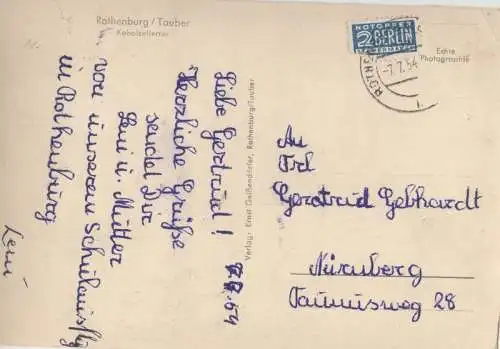 Rothenburg / Tauber
Kobolzellertor
7.7.54
Liebe Gertrud!
Herzliche Grüße
sendet Dir
Leni u. Mutter
von unserem Schulausflg
in Rothenburg
Leni
Verlag: Ernst Geißendörfer, Rothenburg/Tauber
NOTOPFER
2 BERLIN
STEUERMARKE
ROTHE
-7.7.54
Echte
Photographie
An
Frl
Gertrud Gebhardt
Nürnberg
Taunusweg 28